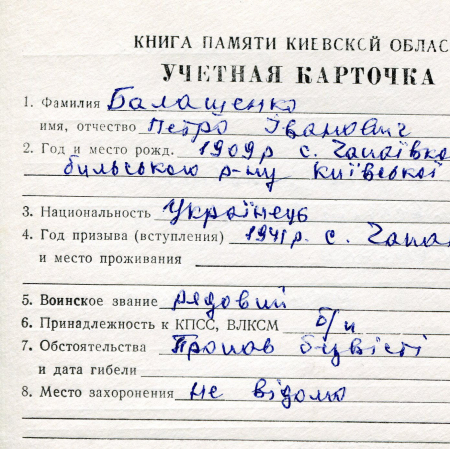 КНИГА ПАМЯТИ КИЕВСКСЙ ОБЛАС
УЧЕТНАЯ КАРТОЧКА
1. Фамилия Балащенко
имя, отчество Петро Іванович
2. Год и место рожд. 1909р с. Чапаївка
більського р-ну Київської
3. Национальность Українець
4. Год призыва (вступления) 1941р. с. Чапа
и место проживания
5. Воинское звание рядовий
6. Принадлежность к КПСС, ВЛКСМ б/п
7. Обстоятельства Пропав безвісті
и дата гибели
8. Место захоронения не відомо